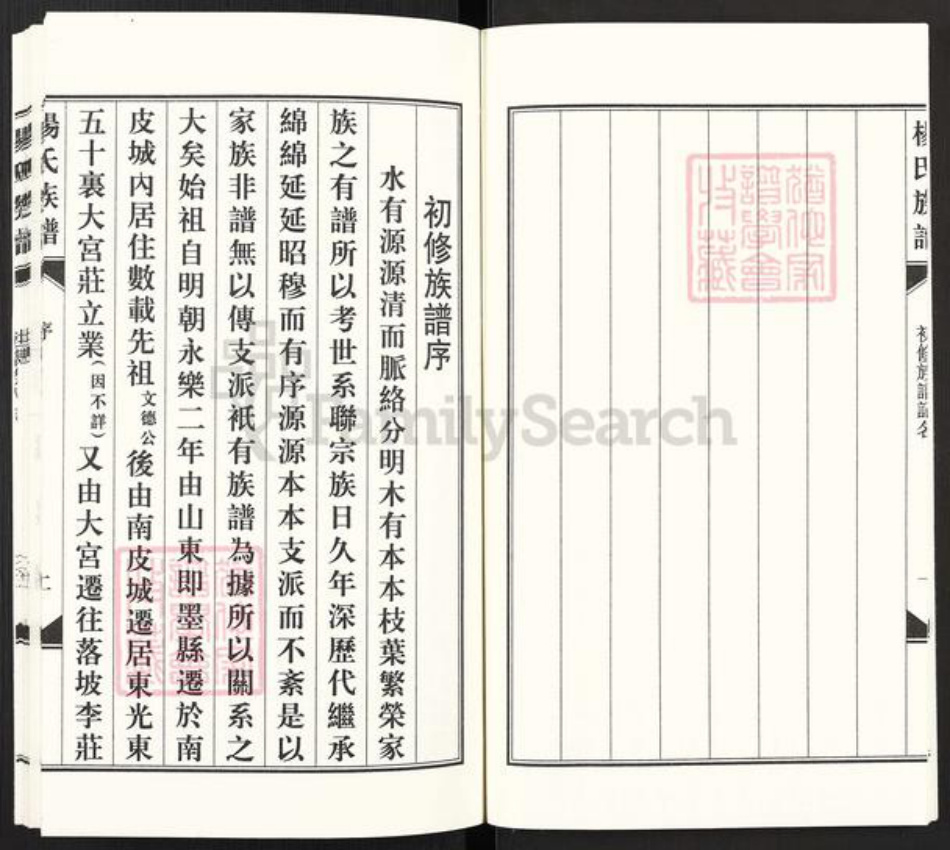 楊氏族譜
初修族譜序
水有源源清而脈絡分明木有本本枝葉繁榮家
族之有譜所以考世系聯宗族日久年深歷代繼承
綿綿延延昭穆而有序源源本本支派而不紊是以
家族非譜無以傳支派衹有族譜為據所以關系之
大矣始祖自明朝永樂二年由山東即墨縣遷於南
皮城內居住數載先祖文德公後由南皮城遷居東光東
五十裏大宮莊立業(因不詳)又由大宮遷往落坡李莊
楊氏族譜
序
FamilySearch